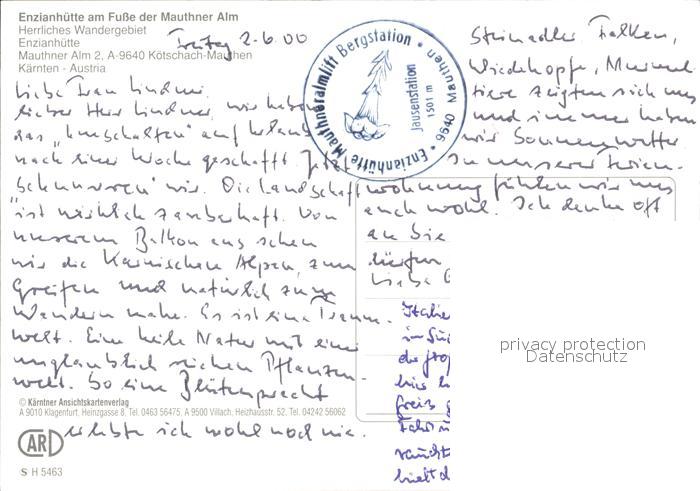 Enzianhütte am Fuße der Mauthner Alm
Herrliches Wandergebiet
Enzianhütte
Mauthner Alm 2, A-9640 Kötschach-Mauthen
Kärnten - Austria
Freitag 2.6.00
Liebe Frau Lindner,
lieber Herr Lindner, wir haben
das "Umschalten" auf Urlaub
nach einer Woche geschafft. Jetzt
"schnurren" wir. Die Landschaft
ist wirklich zauberhaft. Von
unserem Balkon aus sehen
wir die Karnischen Alpen, zum
Greifen und natürlich zum
Wandern nahe. Es ist eine Traum-
welt. Eine heile Natur mit einer
unglaublich reichen Pflanzen-
welt. So eine Blütenpracht
erlebte ich wohl noch nie.
Enzianhütte Mauthneralmlift Bergstation
9640 Mauthen
Jausenstation
1501 m
Steinadler, Falken,
Wiedehopfe, Murmel
tiere zeigten sich uns
und immer haben
wir Sonnenwetter
In unserer Ferien-
wohnung fühlen wir uns
auch wohl. Ich denke oft
an Sie
Italie
privacy protection
Datenschutz
© Kärntner Ansichtskartenverlag
A 9010 Klagenfurt, Heinzgasse 8, Tel. 0463 56475, A 9500 Villach, Heizhausstr. 52. Tel. 04242 56062
CARD
S H 5463